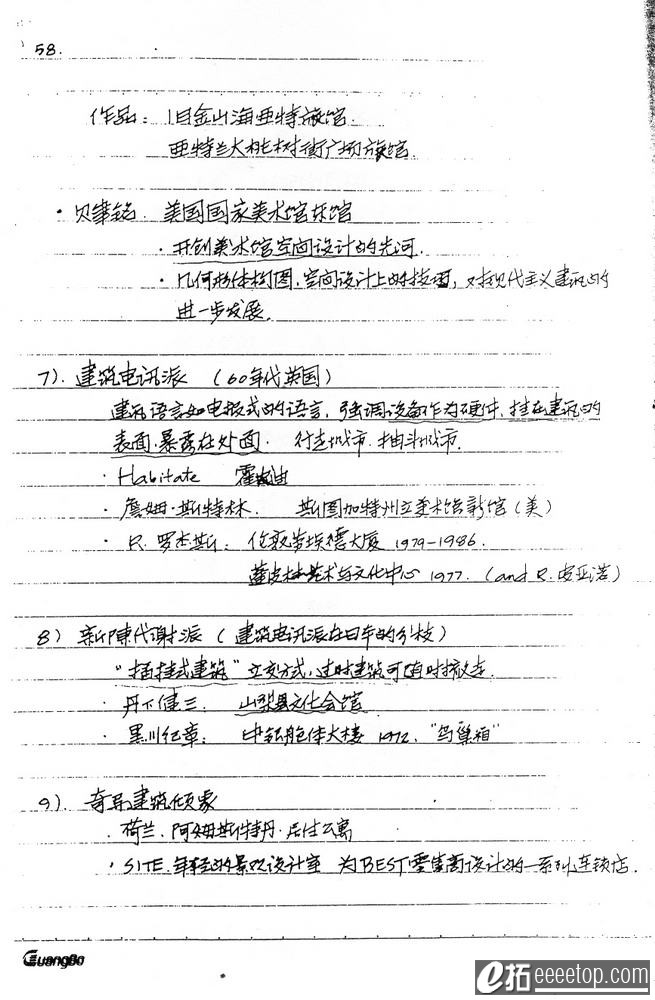 58.
作品: 旧金山海亚特旅馆.
亚特兰大桃树街广场旅馆.
· 贝聿铭. 美国国家美术馆东馆
· 开创美术馆空间设计的先河.
· 几何形体构图,空间设计上的技巧, 对现代主义建筑的
进一步发展.
7). 建筑电讯派 (60年代英国)
建筑语言如电报式的语言, 强调设备作为硬件, 挂在建筑的
表面, 暴露在外面. 行走城市. 抽斗城市.
· Habitate
· 詹姆·斯特林. 斯图加特州立美术馆新馆(美)
· R. 罗杰斯: 伦敦劳埃德大厦 1979-1986.
蓬皮杜艺术与文化中心 1977. (and R. 皮亚诺)
8) 新陈代谢派 (建筑电讯派在日本的分枝)
"插挂式建筑" 立交方式, 过时建筑可随时撤去.
· 丹下健三. 山梨县文化会馆
· 黑川纪章: 中银舱体大楼 1972. "鸟巢箱"
9). 奇异建筑倾象
· 荷兰. 阿姆斯特丹. 居住公寓
· SITE. 年轻的景观设计室 为BEST零售商设计的一系列连锁店.
GuangBo
e拓 eeeetop.com